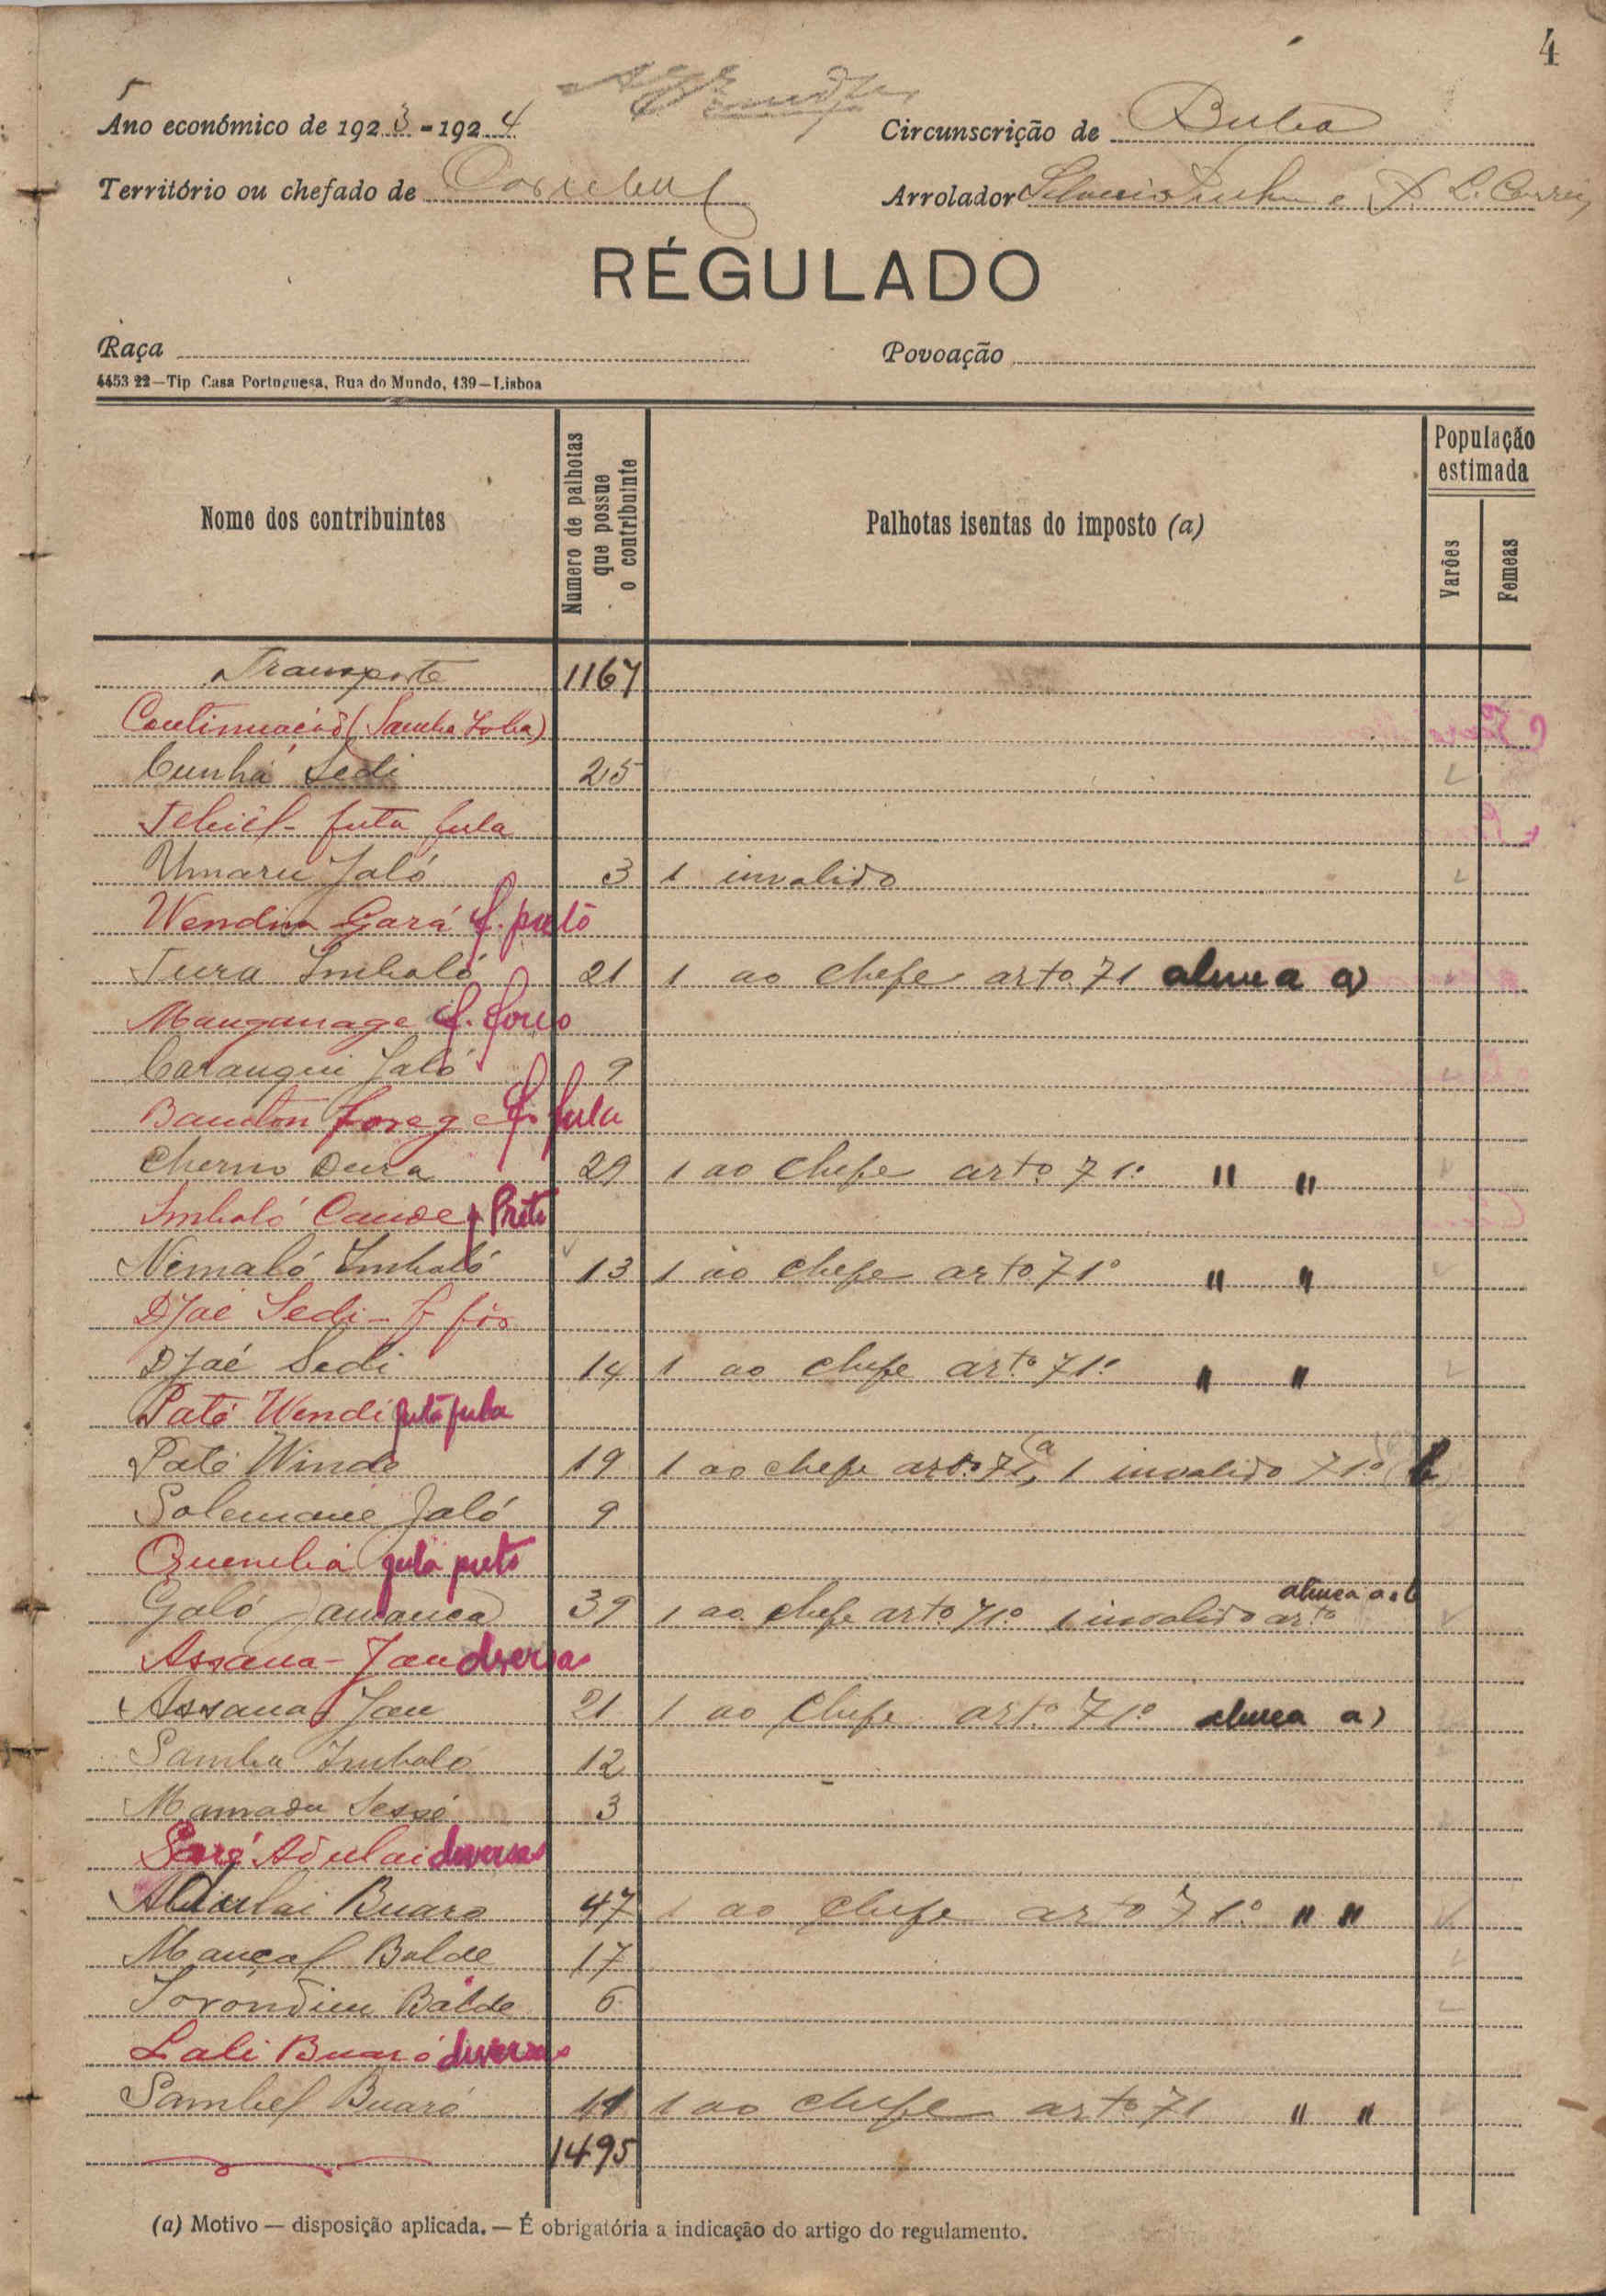 4
Ano económico de 1923-1924
Circunscrição de Buba
Território ou chefado de
Arrolador e L. Correia
RÉGULADO
Raça
Povoação
4453 22—Tip Casa Portuguesa, Rua do Mundo, 139—Lisboa
Nome dos contribuintes
Numero de palhotas que possue o contribuinte
Palhotas isentas do imposto (a)
População estimada
Varões
Femeas
Transporte 1167
Continuação (Samba
Cunhá Sedi 25
futa fula
Umaru Jaló 3 1 invalido
Wendim Gará f. preto
Tura Imbaló 21 1 ao chefe arto 71 alinea a)
Manganage f. forro
Carangui Jaló 9
fula
Cherno Dura 29 1 ao chefe arto 71º " "
Imbaló Cande f Preto
Nimaló Imbaló 13 1 ao chefe arto 71º " "
Djaé Sedi - f fôro
Djaé Sedi 14 1 ao chefe arto 71º " "
Paté Wendi futa fula
Paté Windo 19 1 ao chefe arto 71, a 1 invalido 71º b
Solemane Jaló 9
Quenelia fula preto
Galó Jamanca 39 1 ao chefe arto 71º 1 invalido arto alinea a e b
Assana - Jau diversas
Assana Jau 21 1 ao chefe arto 71º alinea a)
Samba Imbaló 12
Mamadu Sessé 3
Saré Adulai diversas
Adulai Buaro 47 1 ao chefe arto 71º " "
Mançal Balde 17
Torondim Balde 6
Lali Buaró diversas
Sambel Buaró 41 1 ao chefe arto 71 " "
1495
(a) Motivo — disposição aplicada. — É obrigatória a indicação do artigo do regulamento.